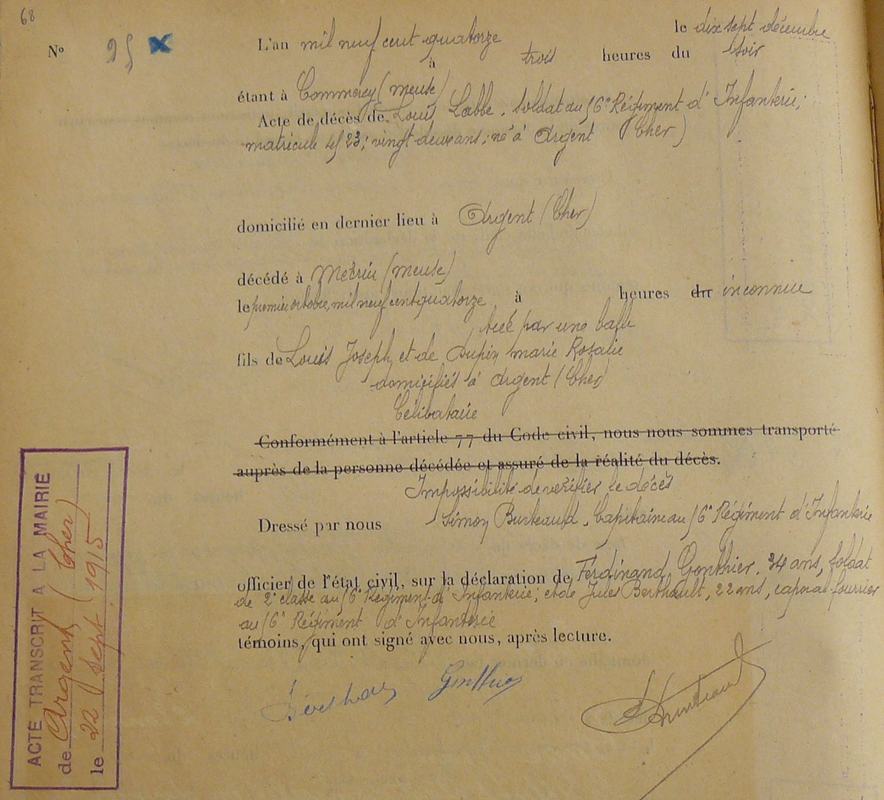 68
N° 95 X
L'an mil neuf cent quatorze le dix sept décembre
à trois heures du soir
étant à Commercy (Meuse)
Acte de décès de Louis Labbe, soldat au 16e Régiment d'Infanterie;
matricule 4123; vingt deux ans; né à Argent (Cher)
domicilié en dernier lieu à Argent (Cher)
décédé à (Meuse)
le premier octobre mil neuf cent quatorze à heures du inconnue
tué par une balle
fils de Louis Joseph et de Dupin Marie Rosalie
domiciliés à Argent (Cher)
Célibataire
Conformément à l'article 77 du Code civil, nous nous sommes transporté
auprès de la personne décédée et assuré de la réalité du décès.
Impossibilité de vérifier le décès
Dressé par nous Simon, Capitaine au 16e Régiment d'Infanterie
officier de l'état civil, sur la déclaration de Ferdinand Gonthier, 34 ans, soldat
de 2e classe au 16e Régiment d'Infanterie; et de Jules Berthault, 22 ans, caporal fourrier
au 16e Régiment d'Infanterie
témoins, qui ont signé avec nous, après lecture.
ACTE TRANSCRIT A LA MAIRIE
de Argent (Cher)
le 22 Sept. 1915